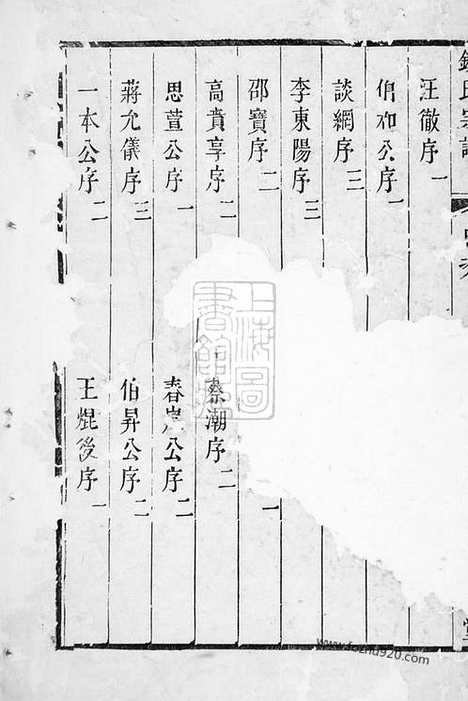 錢氏宗譜
汪徹序 一
伯和公序 一
談綱序 三
李東陽序 三
邵寶序 二
一
高賁亨序 二
蔡潮序 二
思萱公序 一
春崖公序 二
蔣允儀序 三
伯昇公序 二
一本公序 二
王焜後序 一
上海圖書館藏
www.fozhu920.com